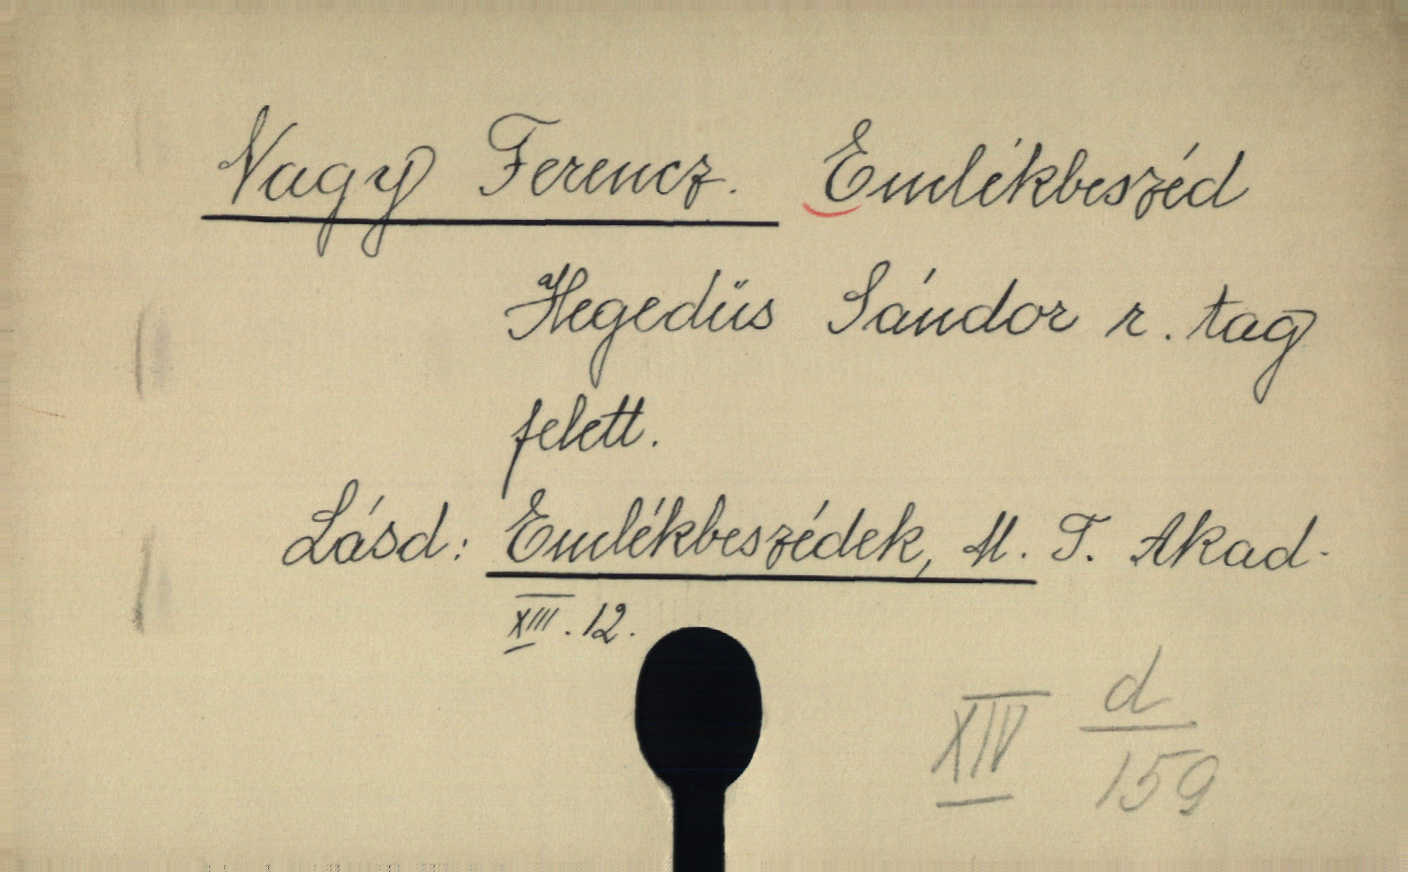 Nagy Ferencz. Emlékbeszéd
Hegedüs Sándor r. tag
felett.
Lásd: Emlékbeszédek, M. T. Akad.
XIII. 12.
XIV d/159